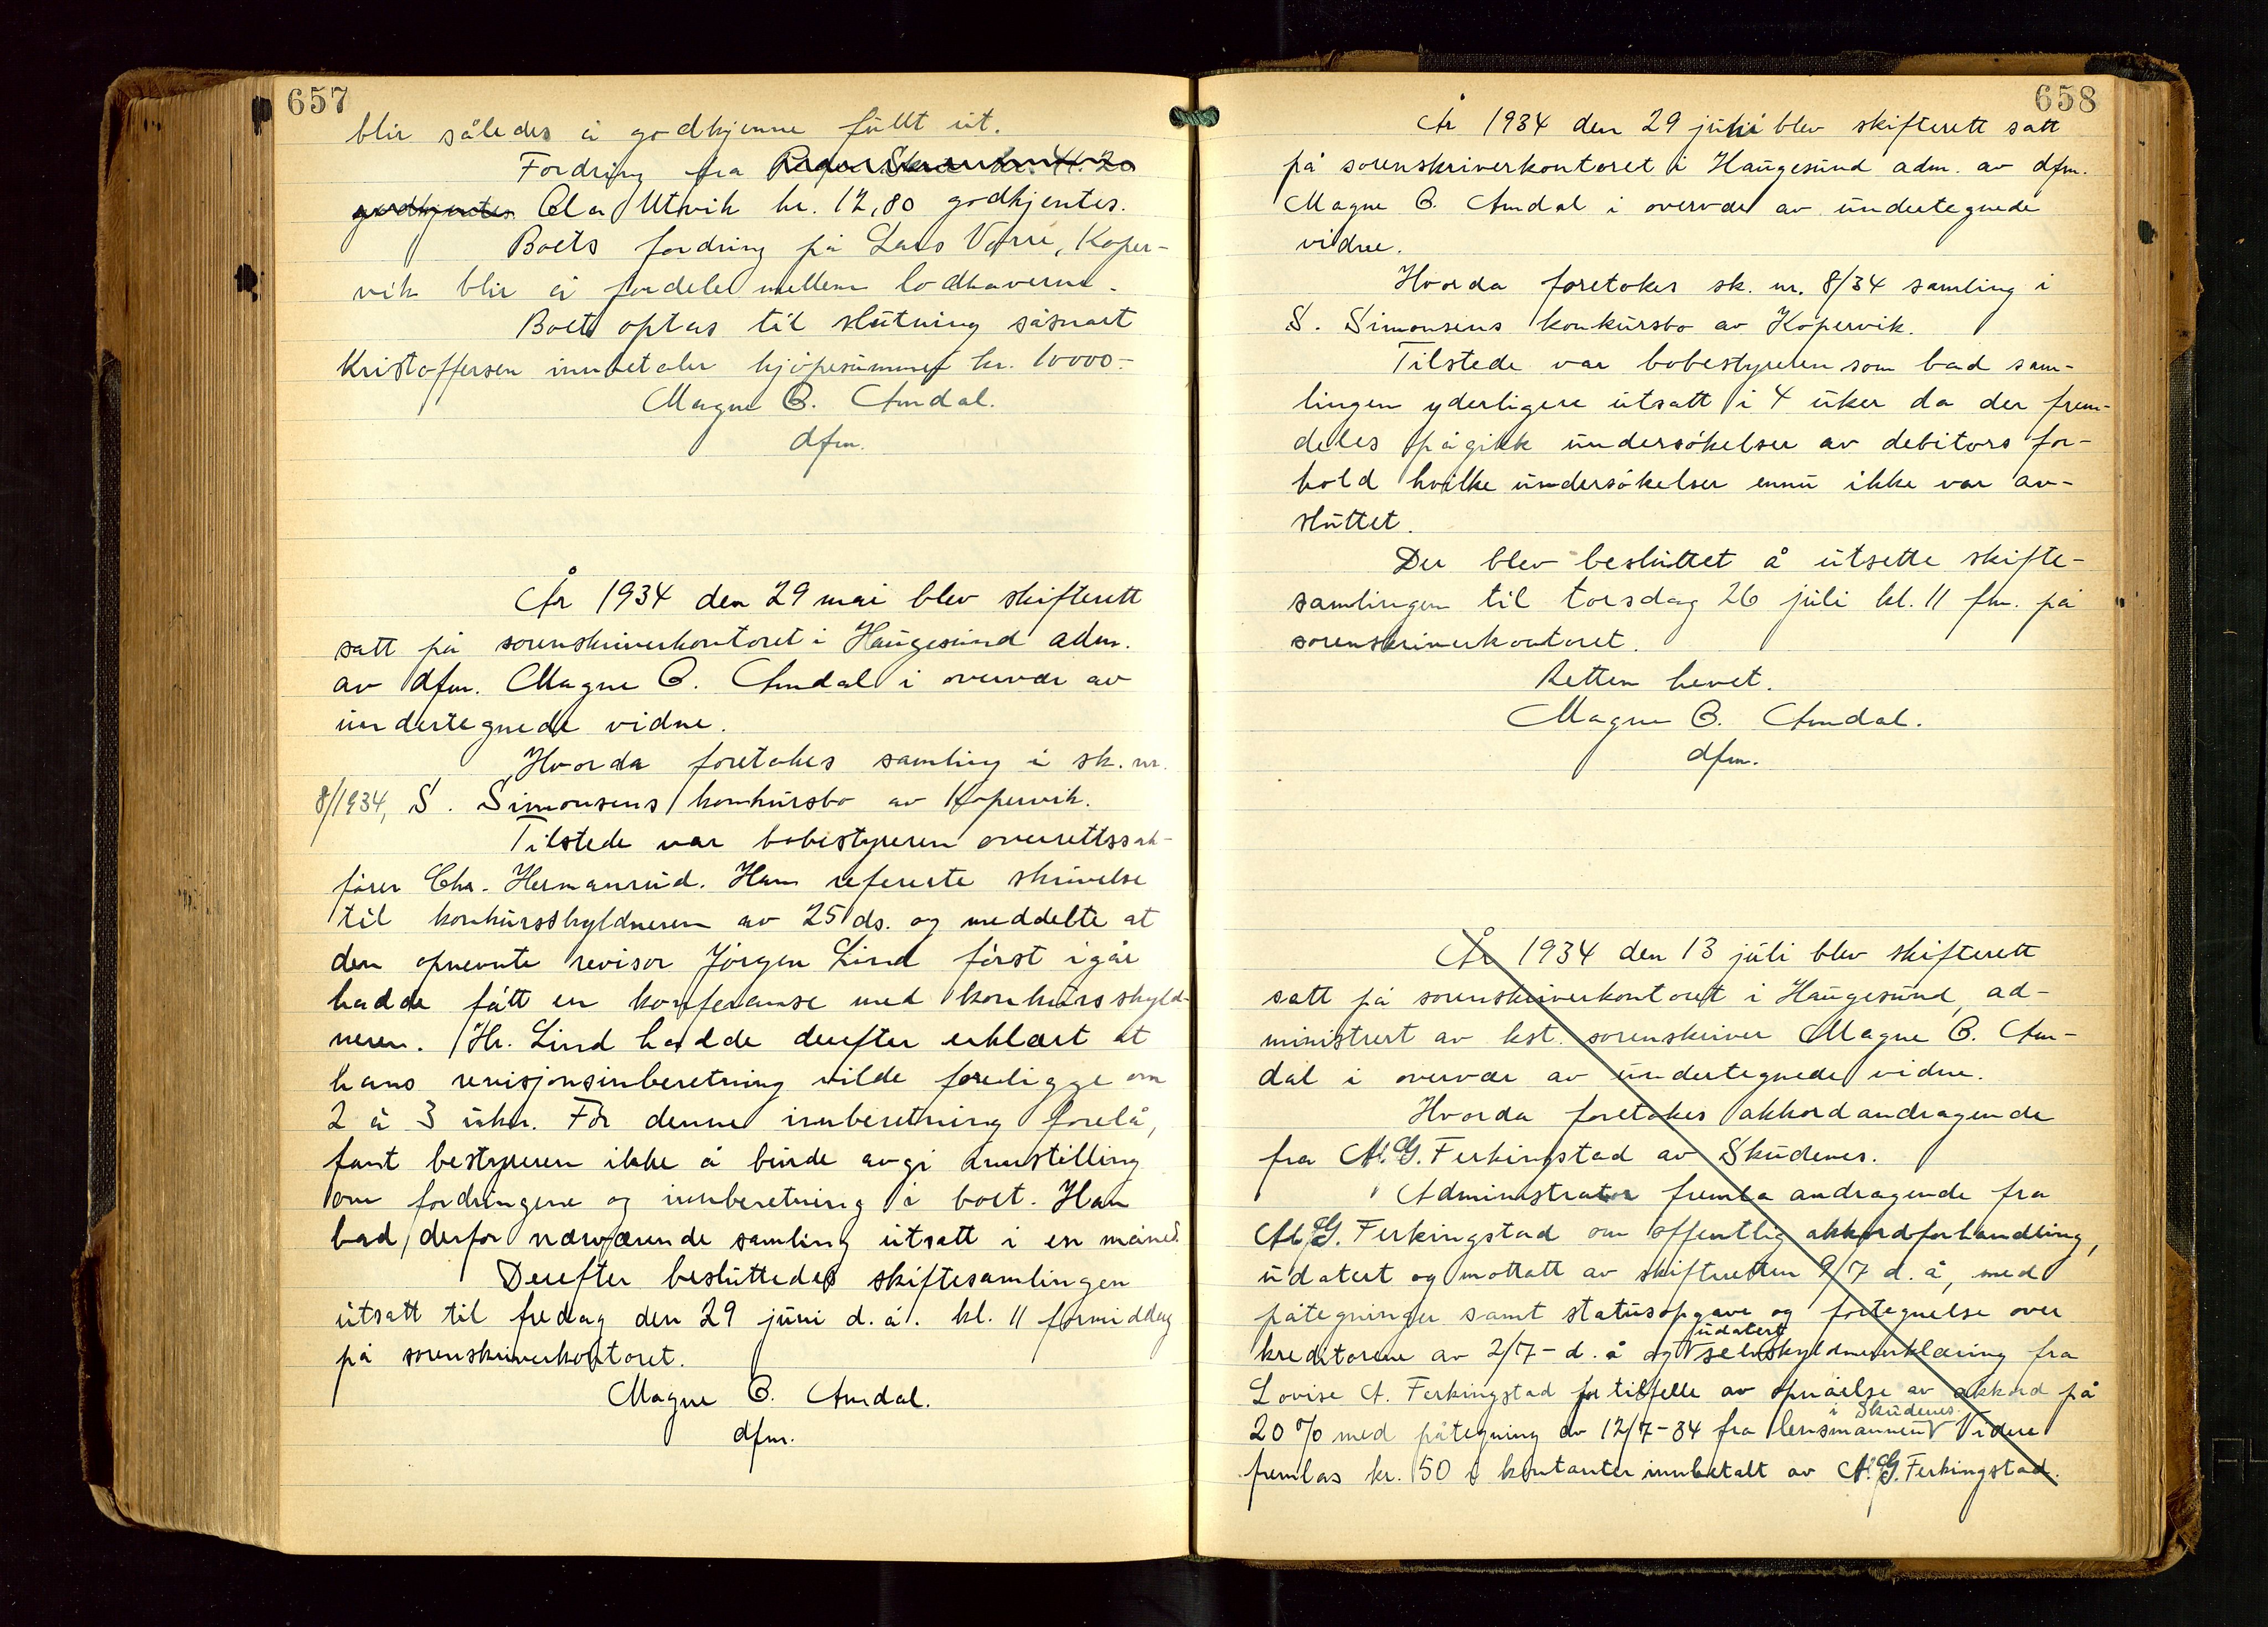 657
blir således å godkjenne fullt ut.
Fordring fra
godkjentes Ola Utvik kr. 12,80 godkjentes.
Boets fordring på Lars Vorre, Koper-
vik blir å fordele mellem lodhaverne.
Boet optas til slutning såsnart
Kristoffersen innbetaler kjøpesummen kr. 10000.-
Magne B. Amdal.
dfm.
År 1934 den 29 mai blev skifterett
satt på sorenskriverkontoret i Haugesund adm.
av dfm. Magne B. Amdal i overvær av
undertegnede vidne.
Hvorda foretokes samling i sk. nr.
8/1934, S. Simonsens konkursbo av Kopervik.
Tilstede var bobestyreren overrettssak-
fører Chr. Hermansrud. Han refererte skrivelse
til konkursskyldneren av 25 ds. og meddelte at
den opnevnte revisor Jørgen Lind først igår
hadde fått en konferanse med konkursskyld-
neren. Hr. Lind hadde derefter erklært at
hans revisjonsinberetning vilde foreligge om
2 à 3 uker. Før denne innberetning forelå,
fant bestyreren ikke å burde avgi innstilling
om fordringene og innberetning i boet. Han
bad derfor nærværende samling utsatt i en måned.
Derefter besluttedes skiftesamlingen
utsatt til fredag den 29 juni d.å. kl. 11 formiddag
på sorenskriverkontoret.
Magne B. Amdal.
dfm.
658
År 1934 den 29 juni blev skifterett satt
på sorenskriverkontoret i Haugesund adm. av dfm.
Magne B. Amdal i overvær av undertegnede
vidne.
Hvorda foretokes sk. nr. 8/34 samling i
S. Simonsens konkursbo av Kopervik.
Tilstede var bobestyreren som bad sam-
lingen yderligere utsatt i 4 uker da der frem-
deles pågikk undersøkelser av debitors for-
hold hvilke undersøkelser ennu ikke var av-
sluttet.
Der blev besluttet å utsette skifte-
samlingen til torsdag 26 juli kl. 11 fm. på
sorenskriverkontoret.
Retten hevet.
Magne B. Amdal.
dfm.
År 1934 den 13 juli blev skifterett
satt på sorenskriverkontoret i Haugesund, ad-
ministrert av kst. sorenskriver Magne B. Am-
dal i overvær av undertegnede vidne.
Hvorda foretokes akkordandragende
fra A. G. Ferkingstad av Skudenes.
Administrator fremla andragende fra
A. G. Ferkingstad om offentlig akkordforhandling,
udatert og mottatt av skifteretten 9/7 d. å, med
påtegninger samt statusopgave og fortegnelse over
kreditorene av 2/7 - d. å og udatert selvskyldnererklæring fra
Lovise A. Ferkingstad for tilfelle av opnåelse av akkord på
20 % med påtegning av 12/7-34 fra lensmannen i Skudenes. Videre
fremlas kr. 150 i kontanter innbetalt av A. G. Ferkingstad.